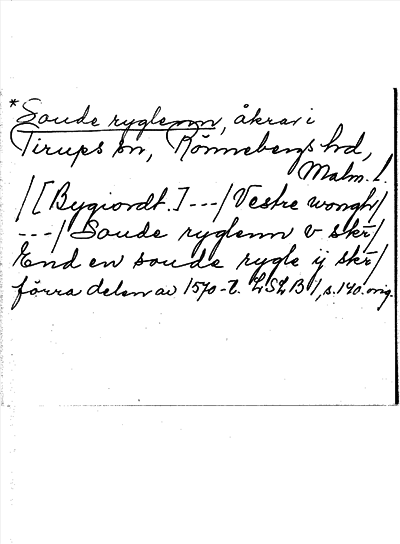 *Soude ryglenn, åkrar i
Tirups sn, Rönnebergs hd,
Malm. l.
/[Bygiordt.] ---/ Vestre wongh/
---/ Soude ryglenn v skr/
End en soude rygle ij skr/
förra delen av 1570-t. LSLB 1, s. 140. orig.